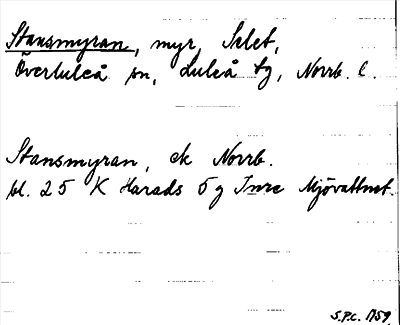 Stansmyran, myr, Selet,
Överluleå sn, Luleå tg, Norrb. l.
Stansmyran, ek Norrb.
bl. 25 K Harads 5g Inre Mjövattnet.
S.P.C. 1959.